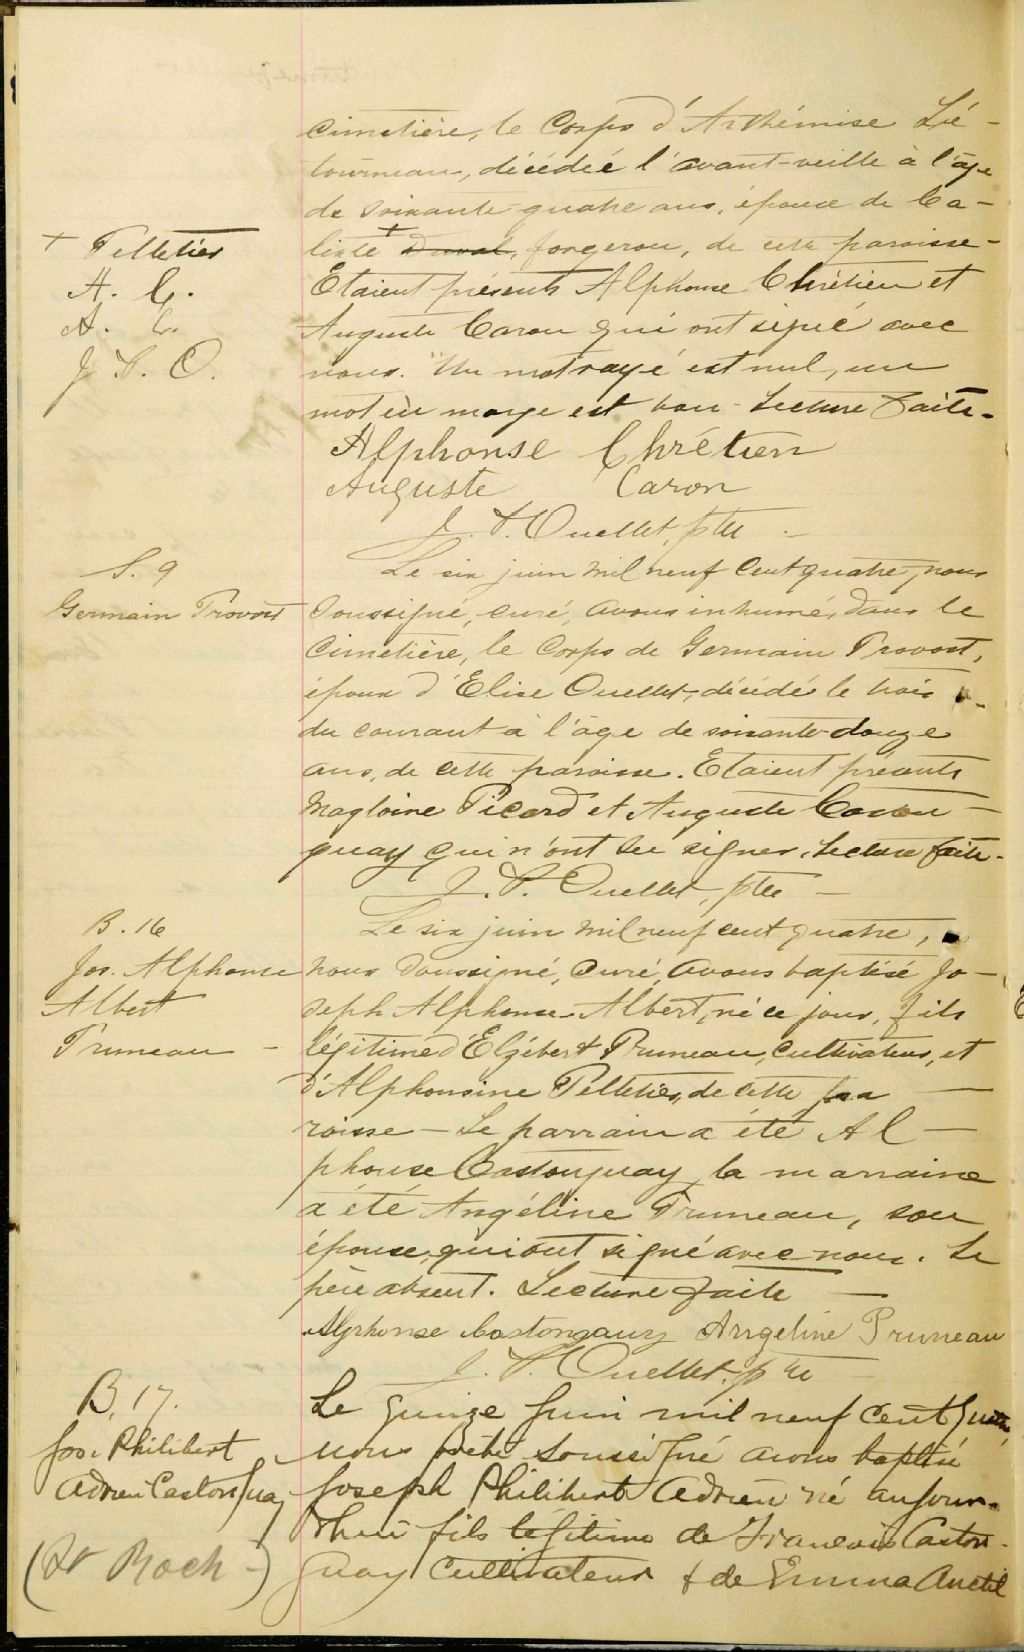 cimetière, le corps d'Arthémise Lé-
tourneau, décédée l'avant-veille à l'âge
de soixante-quatre ans, épouse de Ca-
lixte + Duval, forgeron, de cette paroisse-
+ Pelletier
Etaient présents Alphonse Chrétien et
A. C.
Auguste Caron qui ont signé avec
A. C.
nous. Un mot rayé est nul, un
J. O.
mot en marge est bon - Lecture faite.
Alphonse Chrétien
Auguste Caron
Ouellet, ptre
S. 9
Le six juin mil neuf cent quatre, nous
Germain Provost
soussigné, curé, avons inhumé, dans le
cimetière, le corps de Germain Provost,
époux d'Elise Ouellet, décédé le trois
du courant à l'âge de soixante-douze
ans, de cette paroisse. Etaient présents
Magloire Picard et Auguste
guay qui n'ont su signer. Lecture faite.
Ouellet, ptre
B. 16
Le six juin mil neuf cent quatre,
Jos. Alphonse
nous soussigné, curé, avons baptisé Jo-
Albert
seph Alphonse-Albert, né ce jour, fils
Pruneau -
légitime d'Elzébert Pruneau, cultivateur, et
d'Alphonsine Pelletier, de cette pa
roisse - Le parrain a été Al-
phonse Castonguay, la marraine
a été Angéline Pruneau, son
épouse, qui ont signé avec nous. Le
père absent. Lecture faite
Alphonse Castonguay Angeline Pruneau
Ouellet, ptre
B. 17.
Le quinze Juin mil neuf cent quatre,
Jos. Philibert
nous prêtre soussigné avons baptisé
Adrien Castonguay
Joseph Philibert Adrien né aujour-
dhui fils légitime de François Caston-
(St Roch -)
guay cultivateur & de Emma Anctil